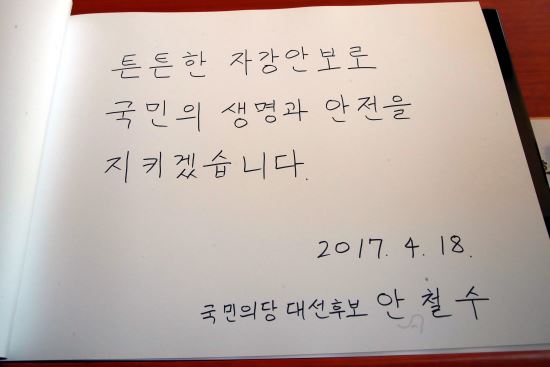 튼튼한 자강안보로
국민의 생명과 안전을
지키겠습니다.
2017. 4. 18.
국민의당 대선후보 안 철 수